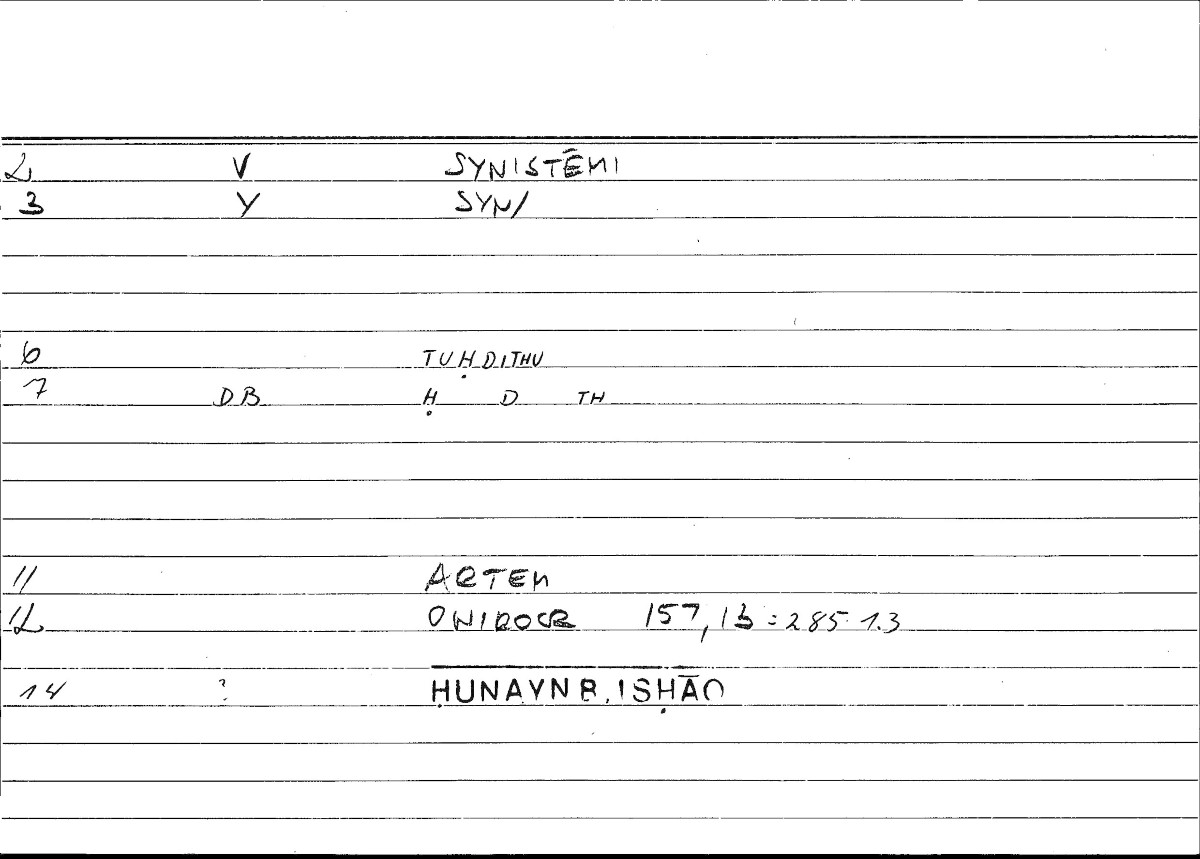 2 V SYNISTĒMI
3 Y SYN/
6 TUḤDITHU
7 DB Ḥ D TH
11 ARTEM
12 ONIROCR 157,13 = 285 1.3
14 ? ḤUNAYN B. ISḤĀQ